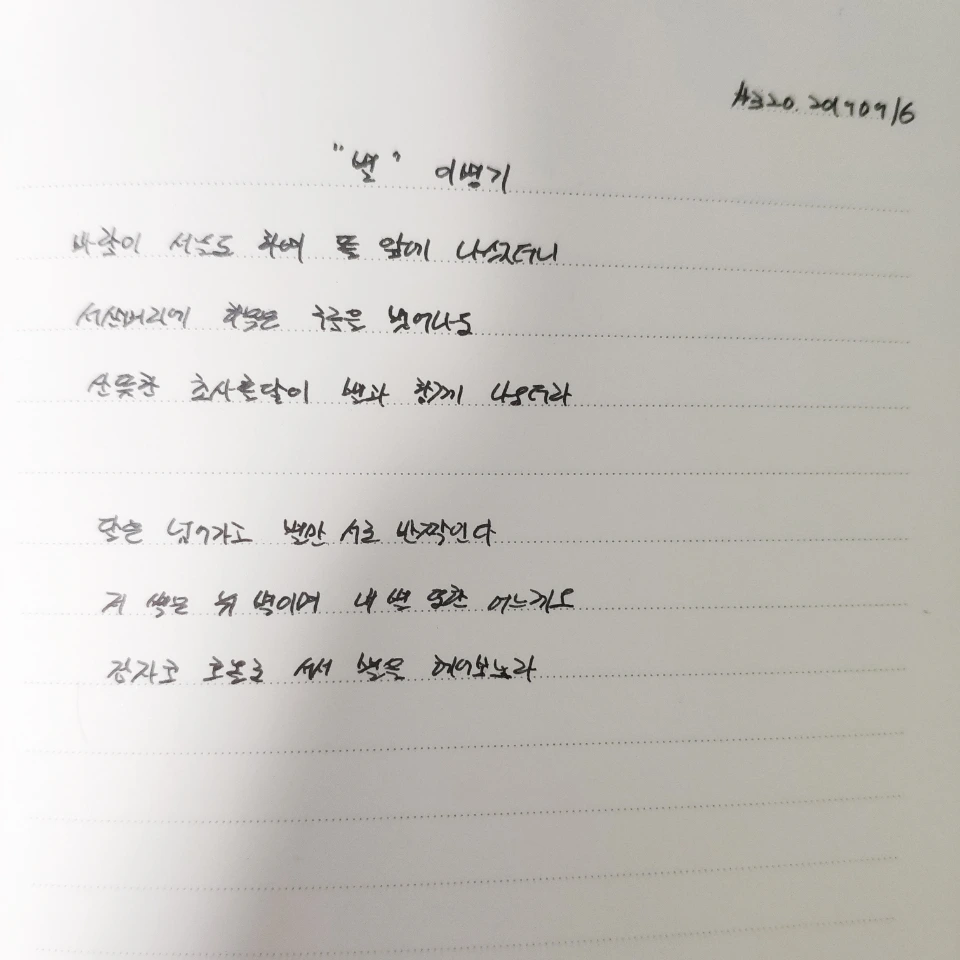 #320. 20190916
"별" 이병기
바람이 서늘도 하여 뜰 앞에 나섰더니
서산머리에 하늘은 구름을 벗어나고
산뜻한 초사흘달이 별과 함께 나오더라
달은 넘어가고 별만 서로 반짝인다
저 별은 뉘 별이며 내 별 또한 어느게오
잠자코 호올로 서서 별을 헤어보노라